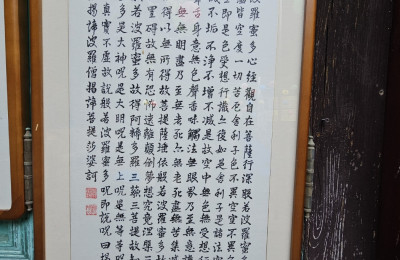 波羅蜜多心經觀自在菩薩行深般若波羅蜜多
皆空度一切苦厄舍利子色不異空空不異色
即是色受想行識亦復如是舍利子是諸法空
滅不垢不淨不增不減是故空中無色無受想行
舌身意無色聲香味觸法無眼界乃至無意識
無無明盡乃至無老死亦無老死盡無苦集滅
得以無所得故菩提薩埵依般若波羅蜜多
罣礙故無有恐怖遠離顛倒夢想究竟涅槃三
若波羅蜜多故得阿耨多羅三藐三菩提故知
多是大神呪是大明呪是無上呪是無等等呪
真實不虛故說般若波羅蜜多呪即說呪曰揭
揭諦波羅僧揭諦菩提莎婆訶